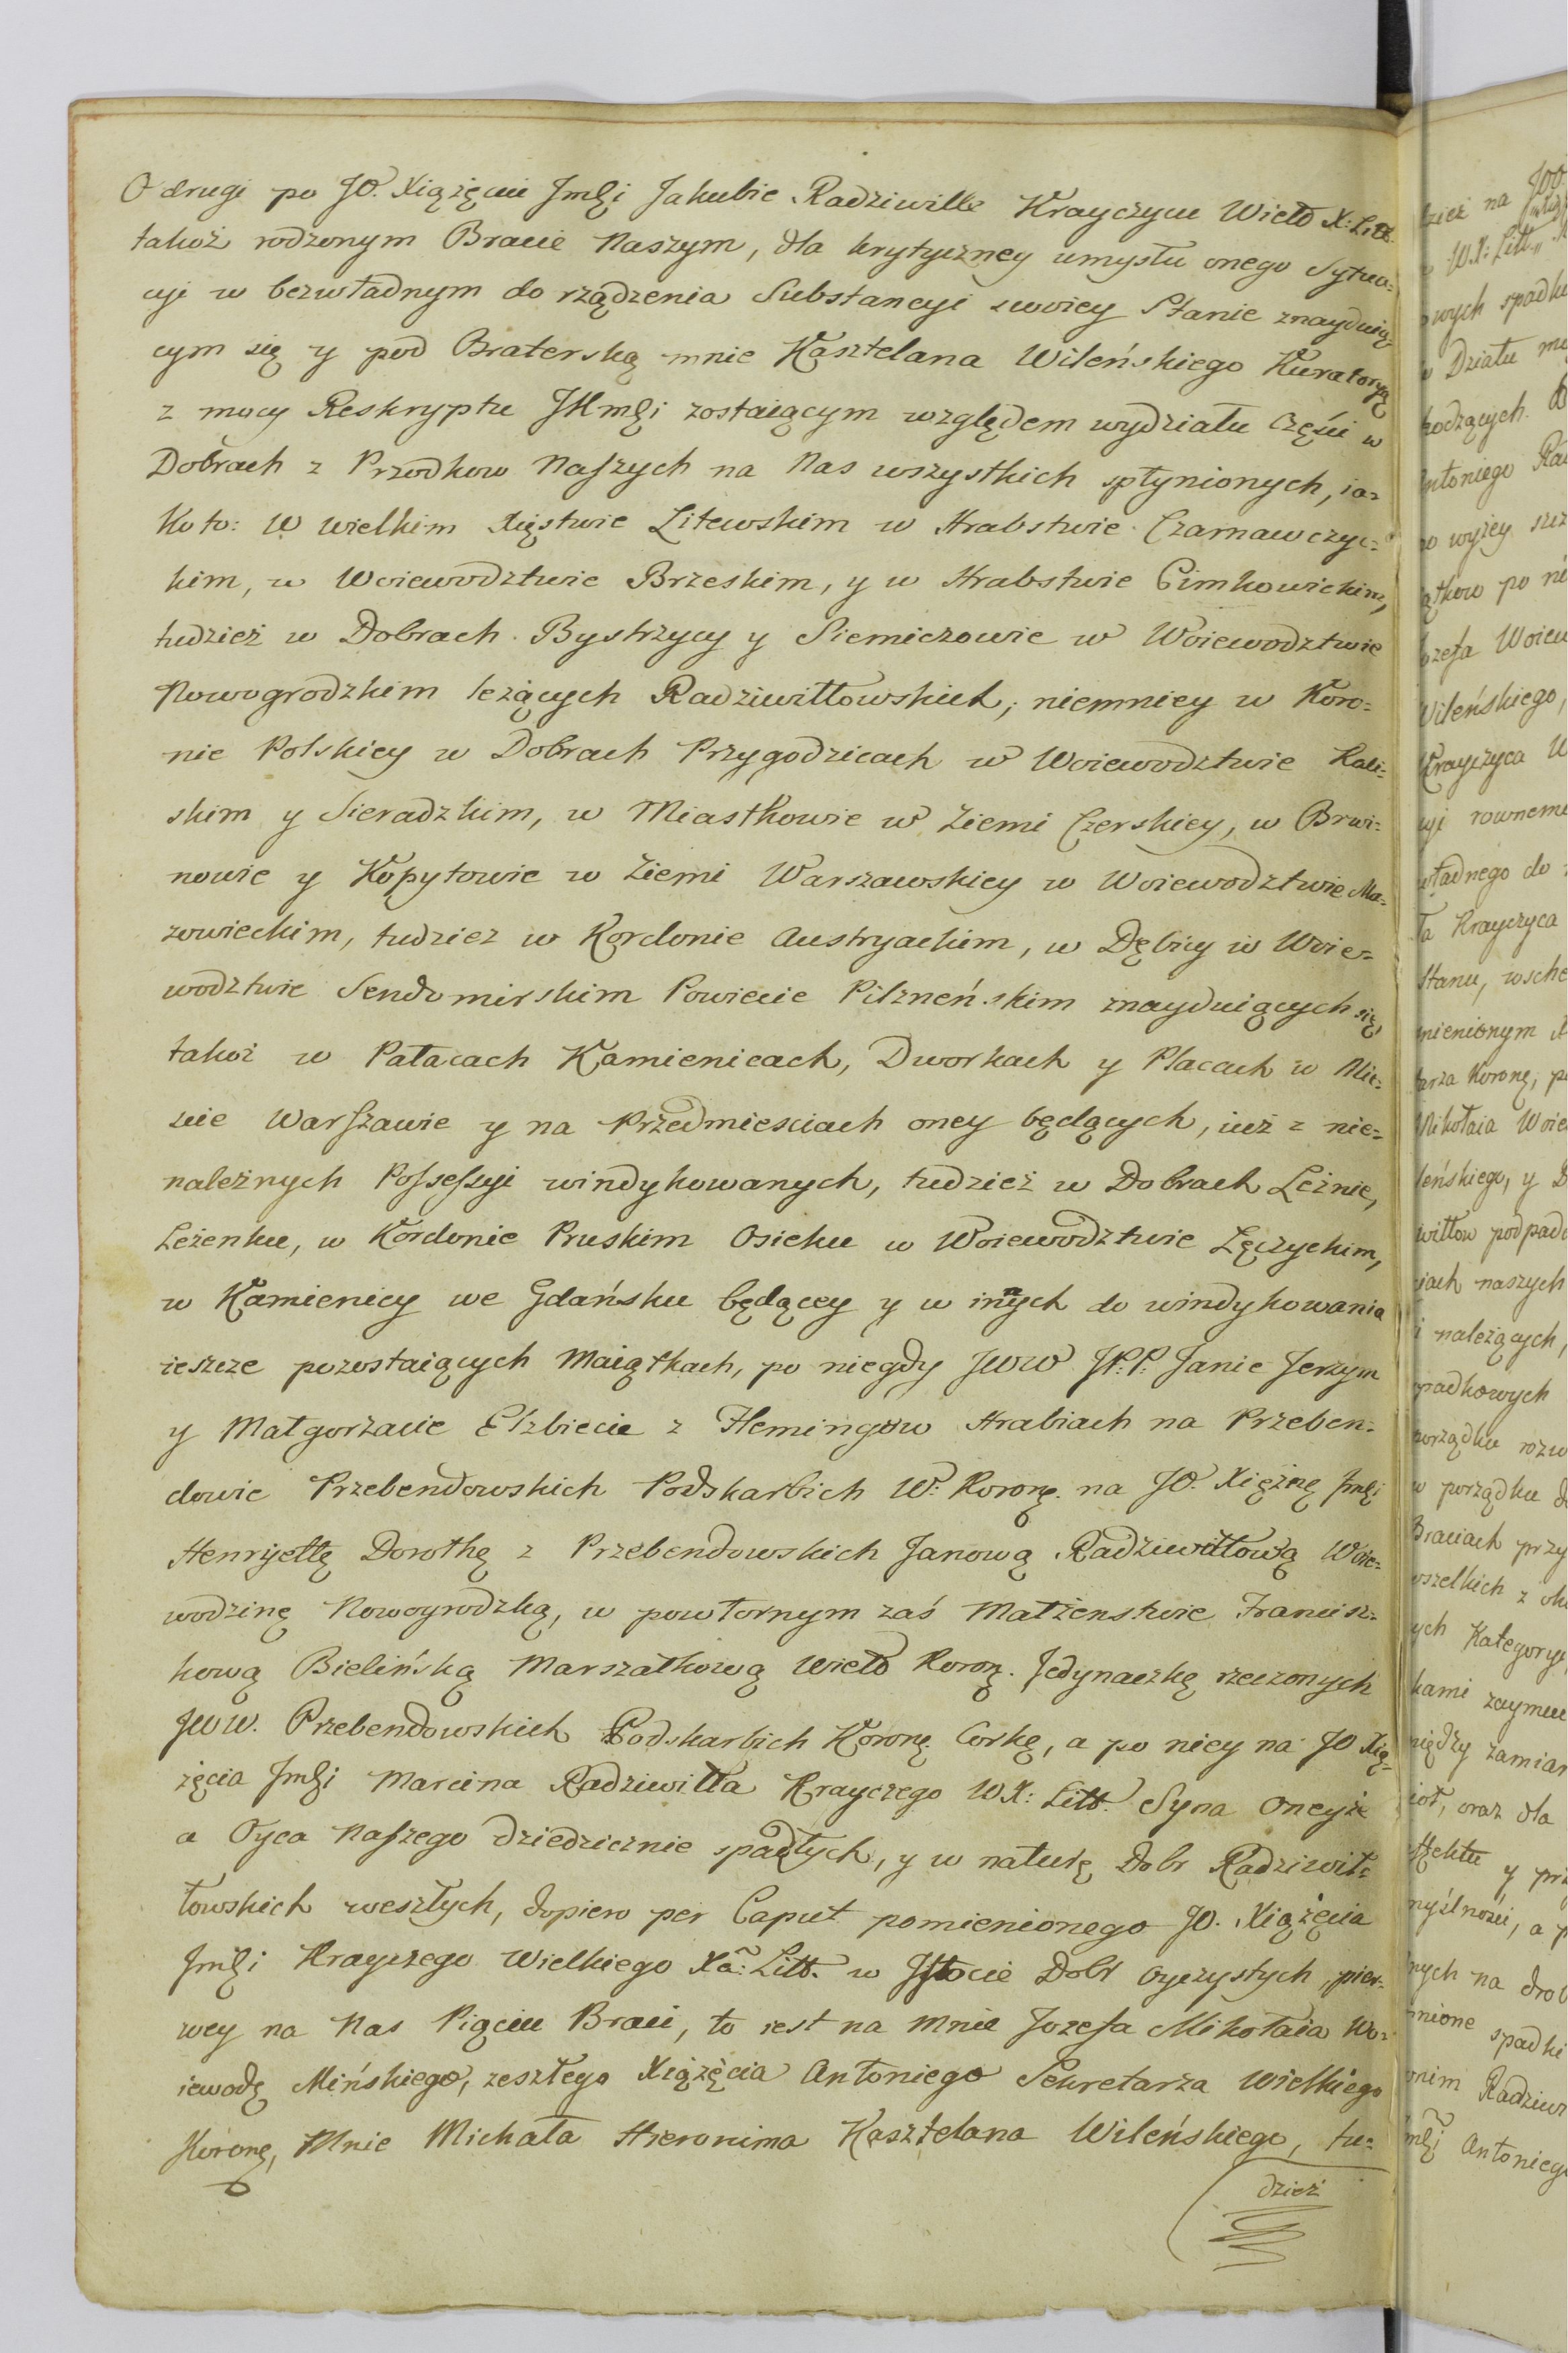 O drugi po JO. Xiążęciu Jmći Jakubie Radziwille Krayczycu Wielo X: Litt.
takoż rodzonym Bracie Naszym, dla krytyczney umysłu onego Sytua-
cyi w bezwładnym do rządzenia Substancyi swoiey Stanie znayduią-
cym się y pod Braterską mnie Kasztelana Wileńskiego Kuratoryą
z mocy Reskryptu JKmći zostaiącym względem wydziału części w
Dobrach z Przodkow Naszych na Nas wszystkich spłynionych, ia-
ko to: W wielkim Xięstwie Litewskim w Hrabstwie Czarnawczyc-
kim, w Woiewodztwie Brzeskim, y w Hrabstwie Cimkowickim,
tudzież w Dobrach Bystrzycy y Siemiczowie w Woiewodztwie
Nowogrodzkim leżących Radziwiłłowskich, niemniey w Koro-
nie Polskiey w Dobrach Przygodzicach w Woiewodztwie Kali-
skim y Sieradzkim, w Miastkowie w Ziemi Czerskiey, w Brwi-
nowie y Kopytowie w Ziemi Warszawskiey w Woiewodztwie Ma-
zowieckim, tudziez w Kordonie Austryackim, w Dębicy w Woie-
wodztwie Sendomirskim Powiecie Pilzneńskim znayduiących się
takoż w Pałacach Kamienicach, Dworkach y Placach w Mie-
scie Warszawie y na Przedmiesciach oney będących, iuż z nie-
należnych Possessyi windykowanych, tudzież w Dobrach Leźnie,
Leżenku, w Kordonie Pruskim Osieku w Woiewodztwie Łęczyckim,
w Kamienicy we Gdańsku będącey y w innych do windykowania
ieszcze pozostaiących Maiątkach, po niegdy JWW JP:P: Janie Jerzym
y Małgorzacie Elżbiecie z Flemingow Hrabiach na Przeben-
dowie Przebendowskich Podskarbich W: Koronę. na JO. Xiężnę Jmći
Henryettę Dorothę z Przebendowskich Janową Radziwiłłową Woie-
wodzinę Nowogrodzką, w powtornym zaś Małżenstwie Francisz-
kową Bielińską Marszałkową Wielo Koronę. Jedynaczkę rzeczonych
JWW. Przebendowskich Podskarbich Koronę. Corkę, a po niey na JO Xią-
żęcia Jmći Marcina Radziwiłła Krayczego WX: Litt. Syna Oneyże
a Oyca Naszego dziedzicznie spadłych, y w naturę Dobr Radziwił-
łowskich weszłych, dopiero per Caput pomienionego JO. Xiążęcia
Jmći Krayczego Wielkiego Xã: Litt. w Istocie Dobr oyczystych, pier-
wey na Nas Pięciu Braci, to iest na mnie Jozefa Mikołaia Wo-
iewodę Mińskiego, zeszłego Xiążęcia Antoniego Sekretarza Wielkiego
Koronę, Mnie Michała Hieronima Kasztelana Wileńskiego, tu-
dzież